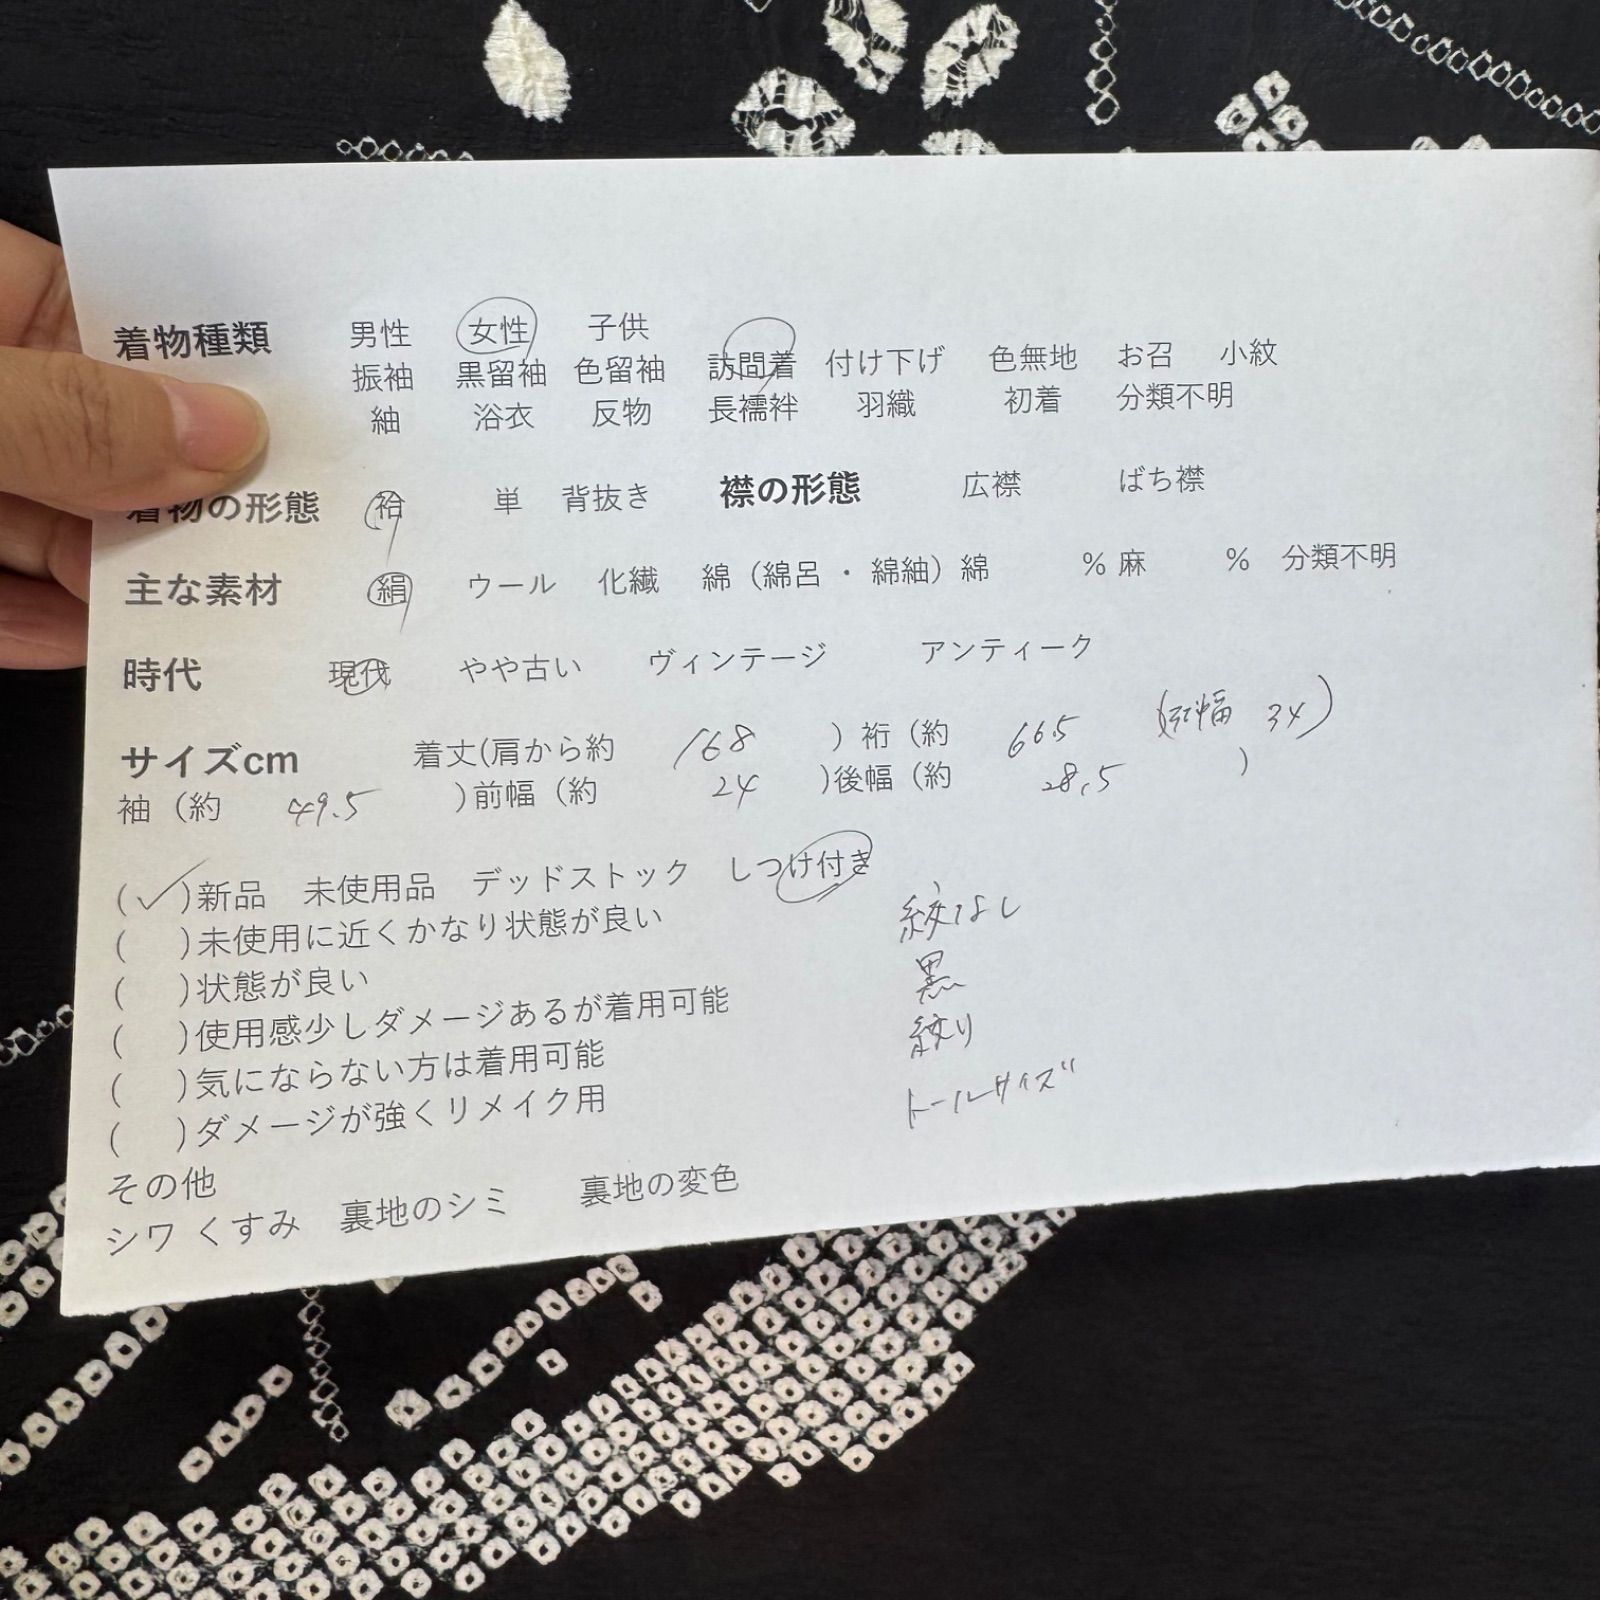 着物種類 男性 女性 子供
振袖 黒留袖 色留袖 訪問着 付け下げ 色無地 お召 小紋
紬 浴衣 反物 長襦袢 羽織 初着 分類不明
着物の形態 袷 単 背抜き 襟の形態 広襟 ばち襟
主な素材 絹 ウール 化繊 綿（綿呂・綿紬）綿 ％ 麻 ％ 分類不明
時代 現代 やや古い ヴィンテージ アンティーク
サイズcm 着丈(肩から約 168 ) 裄（約 66.5 (袖幅 34)
袖（約 49.5 )前幅（約 24 )後幅（約 28.5 )
(✓)新品 未使用品 デッドストック しつけ付き
( )未使用に近くかなり状態が良い
( )状態が良い
( )使用感少しダメージあるが着用可能
( )気にならない方は着用可能
( )ダメージが強くリメイク用
紋なし
黒
絞り
トールサイズ
その他
シワ くすみ 裏地のシミ 裏地の変色